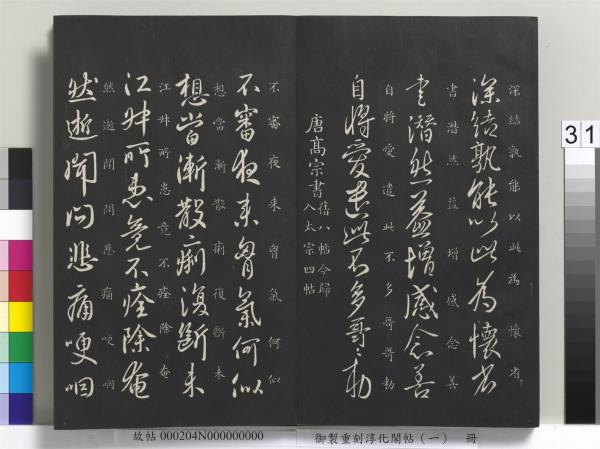 深結孰能以此為懷省
深結孰能以此為懷省
書潛然益增感念善
書潛然益增感念善
自將愛遣此不多哥哥勅
自將愛遣此不多哥哥勅
唐髙宗書
舊八帖今歸
入太宗四帖
不審夜來胷氣何似
不審夜來胷氣何似
想當漸散痢復斷未
想當漸散痢復斷未
江叔所患竟不痊除奄
江叔所患竟不痊除奄
然逝聞問悲痛哽咽
然逝聞問悲痛哽咽
31
故帖 000204N000000000
御製重刻淳化閣帖(一) 冊